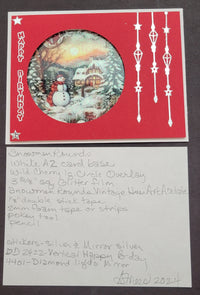 HAPPY BIRTHDAY
Snowman Rounds
White A2 card base
Wild Cherry Circle Overlay
3 3/4" sq. Glitter film
Snowman Rounds Vintage
1/8" double stick tape
2mm foam tape or strips
Pokey tool
pencil
stickers - Silver & Mirror silver
Vertical Happy B-day
Diamond lights Mirror
2024